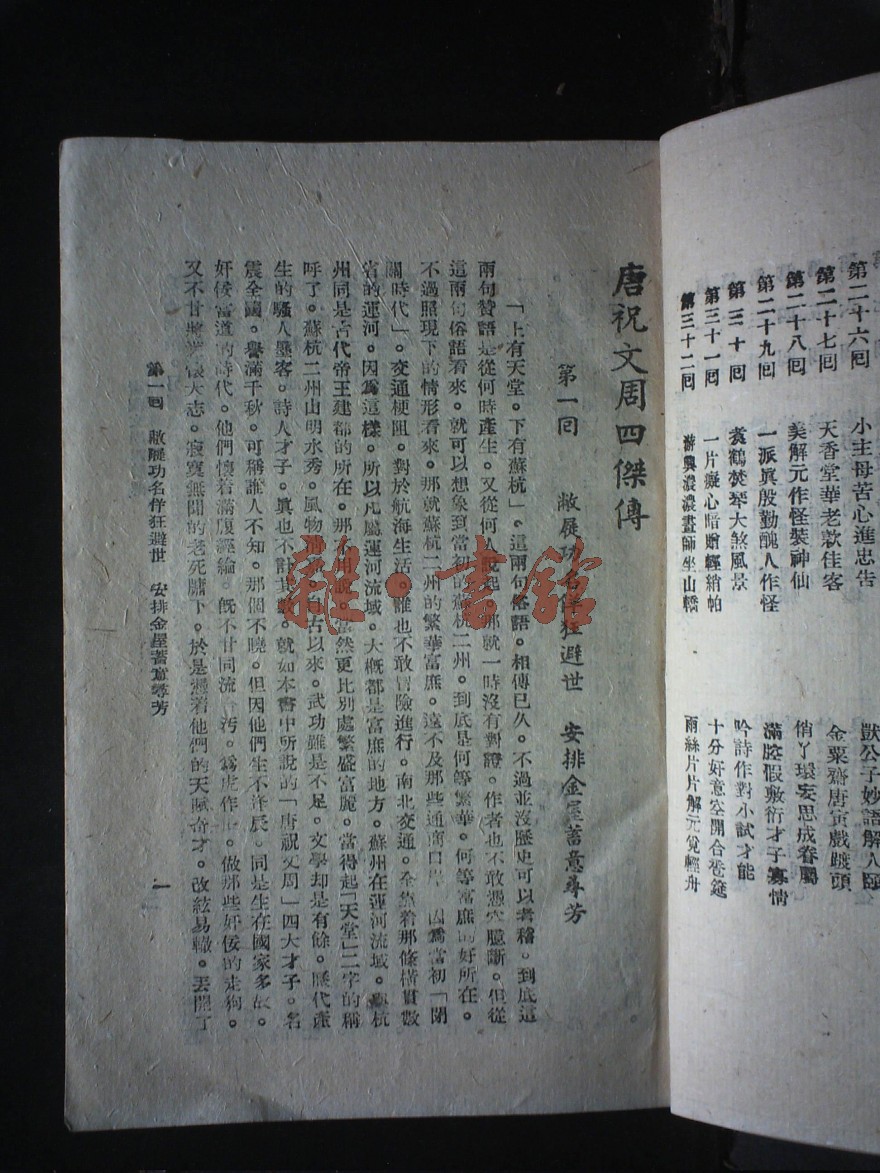 第二十六回　小主母苦心進忠告　獃公子妙語解人頤
第二十七回　天香堂華老款佳客　金粟齋唐寅戲踱頭
第二十八回　美解元作怪裝神仙　俏丫環妄思成眷屬
第二十九回　一派眞殷勤醜人作怪　滿腔假敷衍才子寡情
第三十回　煑鶴焚琴大煞風景　吟詩作對小試才能
第三十一回　一片癡心暗贈輕綃帕　十分好意空開合卺筵
第三十二回　游興濃濃畫師坐山轎　雨絲片片解元覓輕舟
唐祝文周四傑傳
第一回　敝屣功名佯狂避世　安排金屋蓄意尋芳
「上有天堂。下有蘇杭」。這兩句俗語。相傳已久。不過並沒歷史可以考稽。到底這
兩句贊語是從何時產生。又從何人說起。那就一時沒有對證。作者也不敢憑空臆斷。但從
這兩句俗語看來。就可以想象到當初的蘇杭二州。到底是何等繁華。何等富庶的好所在。
不過照現下的情形看來。那就蘇杭二州的繁華富庶。遠不及那些通商口岸　因爲當初「閉
關時代」。交通梗阻。對於航海生活。誰也不敢冒險進行。南北交通。全靠着那條橫貫數
省的運河。因爲這樣。所以凡屬運河流域。大概都是富庶的地方。蘇州在運河流域。與杭
州同是古代帝王建都的所在。那不用說。當然更比別處繁盛富麗。當得起「天堂」二字的稱
呼了。蘇杭二州山明水秀。風物清秀。自古以來。武功雖是不足。文學却是有餘。歷代產
生的騷人墨客。詩人才子。眞也不計其數。就如本書中所說的「唐祝文周」四大才子。名
震全國。譽滿千秋。可稱誰人不知。那個不曉。但因他們生不逢辰。同是生在國家多故。
奸佞當道的時代。他們懷着滿腹經綸。旣不甘同流　汚。爲虎作　。做那些奸佞的走狗。
又不甘將　懷大志。寂寞無聞的老死牖下。於是憑着他們的天賦奇才。改絃易轍。丟開了
第一回　敝屣功名佯狂避世　安排金屋蓄意尋芳
一
雜·書館